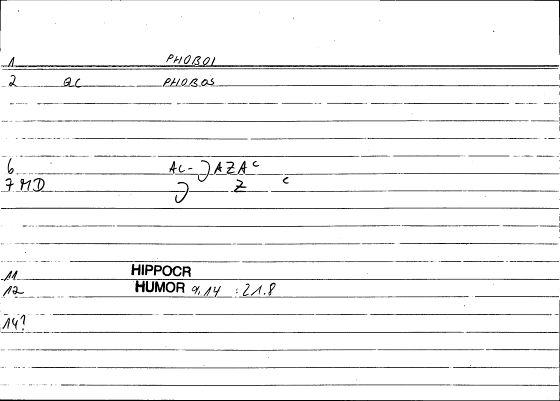 1 PHOBOI
2 QC PHOBOS
6 AC- AZA C
7 MD Z C
11 HIPPOCR
12 HUMOR 9,14 :21.8
14?